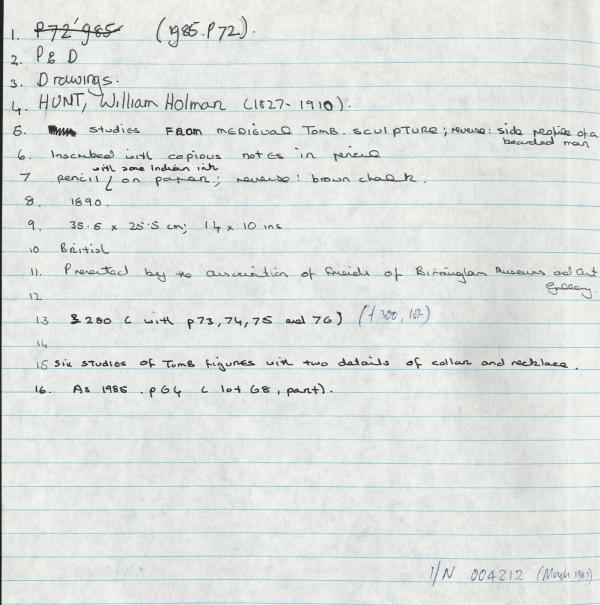 1. P72'985 (1985.P72).
2. P & D
3. Drawings.
4. HUNT, William Holman (1827-1910).
5. studies FROM MEDIEVAL TOMB. SCULPTURE; reverse: side profile of a
bearded man
6. Inscribed with copious notes in pencil
with some Indian ink
7 pencil / on paper; reverse: brown chalk.
8. 1890.
9. 35.5 x 25.5 cm; 14 x 10 ins
10 British
11. Presented by the association of Friends of Birmingham Museums and Art
Gallery.
12
13 £280 (with p73, 74, 75 and 76)
14
15 Six studies of Tomb figures with two details of collar and necklace.
16. As 1985.p64 (lot 68, part).
I/N 004212